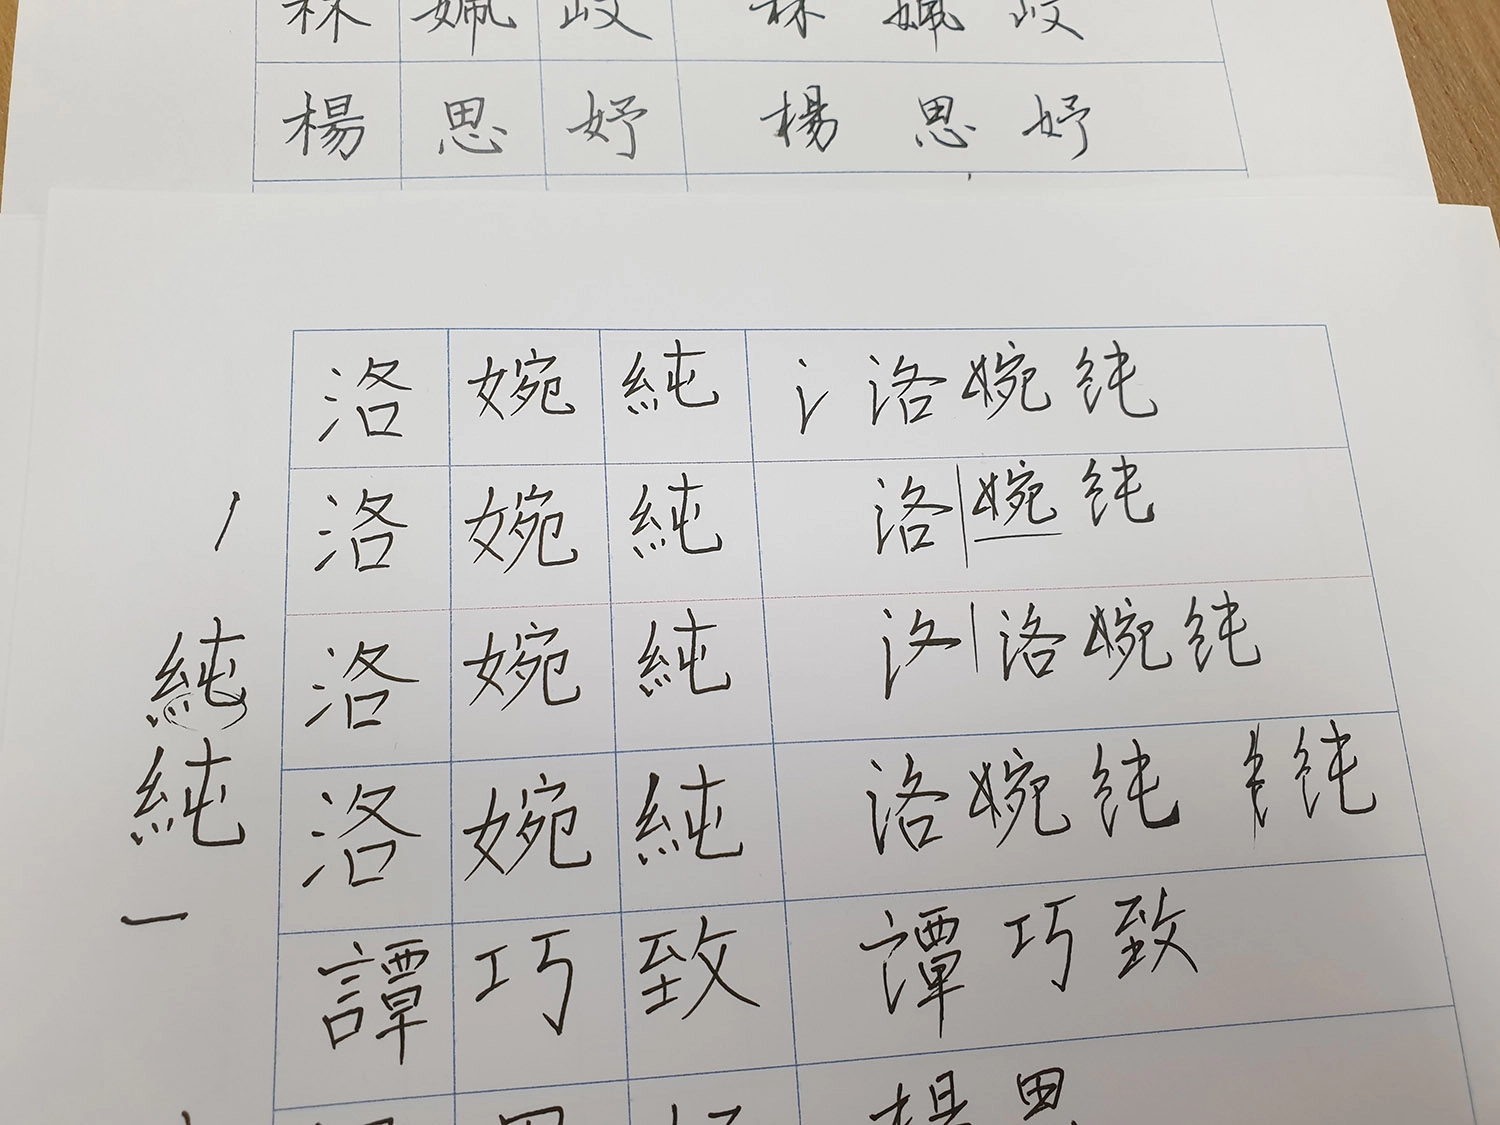 林 姵 岐 林 姵 岐
楊 思 妤 楊 思 妤
洛 婉 純 氵 洛 婉 純
洛 婉 純 洛 婉 純
純 洛 婉 純 洛 婉 純
純 洛 婉 純 洛 婉 純 純
譚 巧 致 譚 巧 致
楊 思